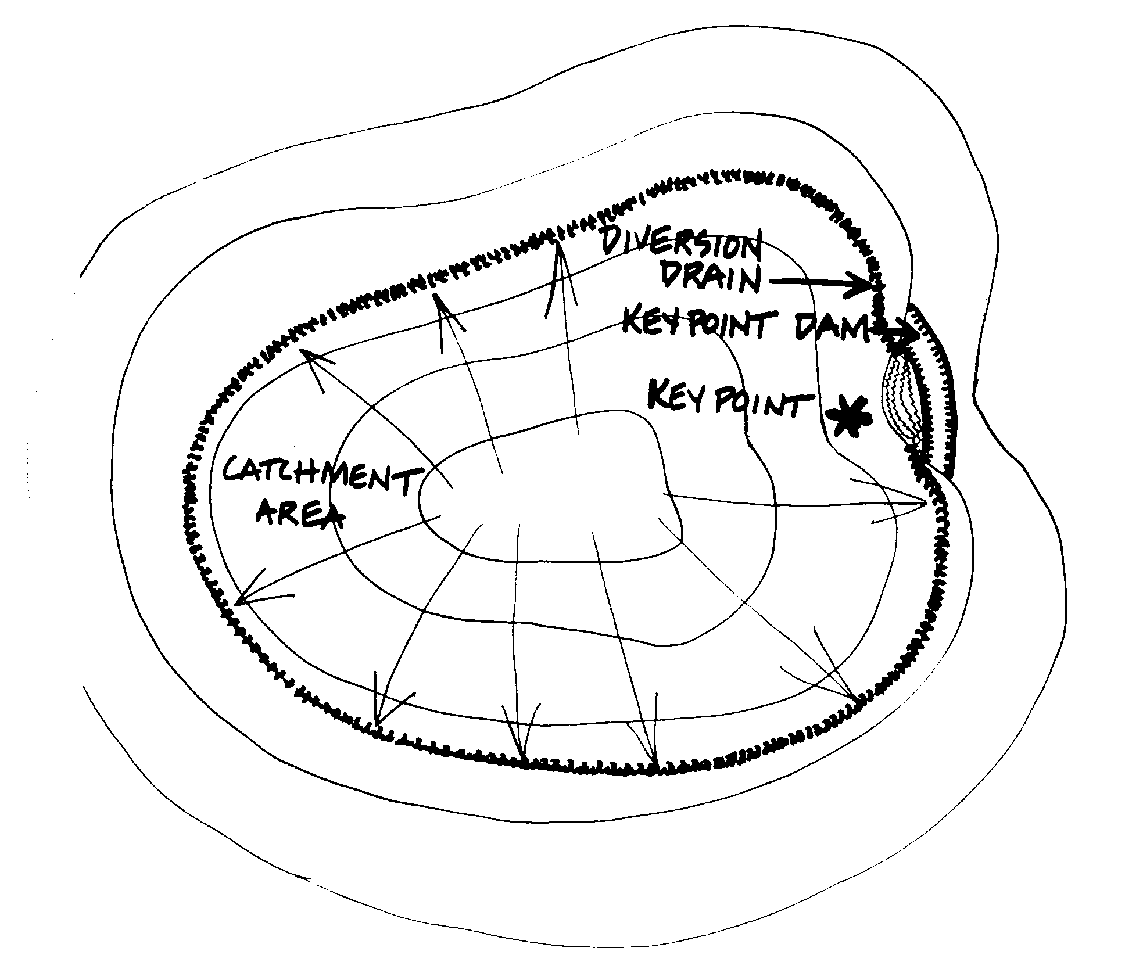 DIVERSION
DRAIN
KEYPOINT DAM
KEYPOINT
CATCHMENT
AREA